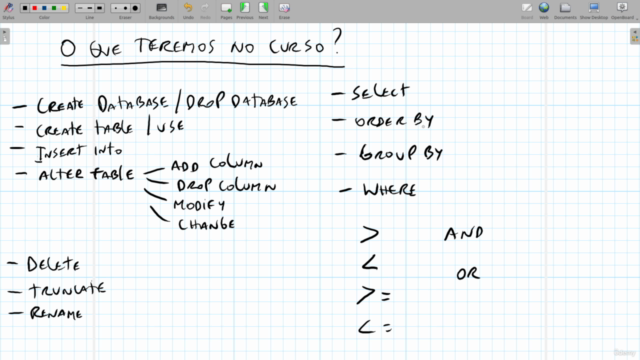 Stylus
Color
Line
Eraser
Backgrounds
Undo
Redo
Pages
Previous
Next
Erase
Board
Web
Documents
Show Desktop
OpenBoard
O QUE TEREMOS NO CURSO?
- CREATE DATABASE / DROP DATABASE
- CREATE TABLE / USE
- INSERT INTO
- ALTER TABLE - ADD COLUMN
- DROP COLUMN
- MODIFY
- CHANGE
- DELETE
- TRUNCATE
- RENAME
- SELECT
- ORDER BY
- GROUP BY
- WHERE
> AND
<
OR
>=
<=